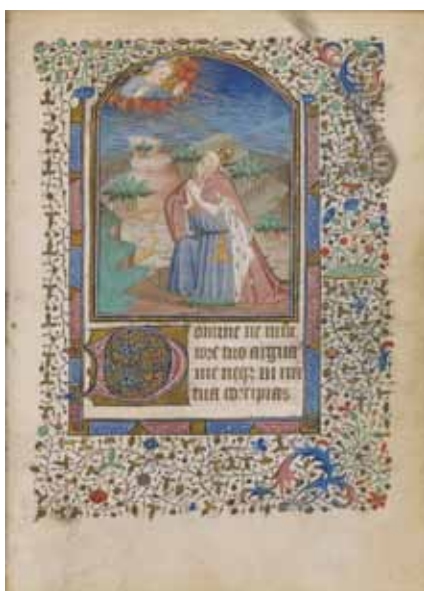 Domine ne in fu
rore tuo argua
me neqz in ira
tua corripias